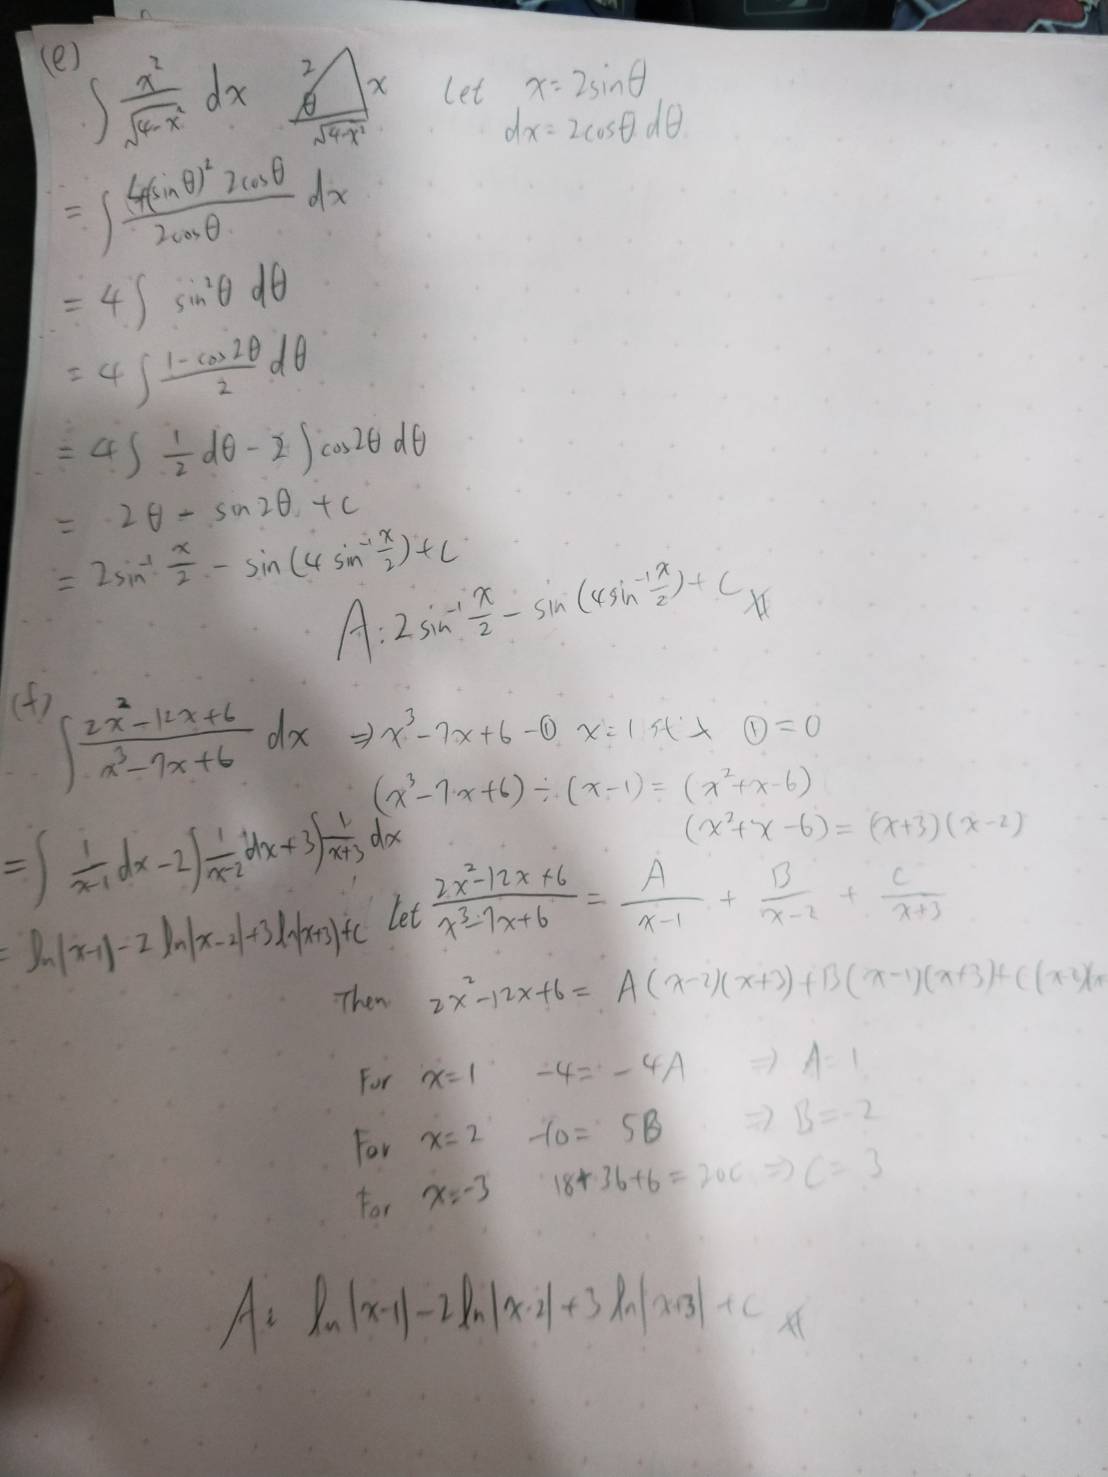 (e)
∫ x²/√(4-x²) dx 2 θ x √(4-x²) Let x = 2sinθ
dx = 2cosθ dθ
= ∫ 4(sinθ)² 2cosθ / 2cosθ dx
= 4∫ sin²θ dθ
= 4∫ (1-cos2θ)/2 dθ
= 4∫ 1/2 dθ - 2∫cos2θ dθ
= 2θ - sin2θ + C
= 2sin⁻¹ x/2 - sin(4 sin⁻¹ x/2) + C
A: 2sin⁻¹ x/2 - sin(4sin⁻¹ x/2) + C
(f)
∫ (2x²-12x+6)/(x³-7x+6) dx ⇒ x³-7x+6 -① x=1 代入 ①=0
(x³-7x+6)÷(x-1) = (x²+x-6)
(x²+x-6) = (x+3)(x-2)
= ∫ 1/(x-1) dx - 2∫ 1/(x-2) dx + 3∫ 1/(x+3) dx
Let (2x²-12x+6)/(x³-7x+6) = A/(x-1) + B/(x-2) + C/(x+3)
= ln|x-1| - 2 ln|x-2| + 3 ln|x+3| + C
Then 2x²-12x+6 = A(x-2)(x+3) + B(x-1)(x+3) + C(x-2)(x
For x=1 -4 = -4A ⇒ A=1
For x=2 -10 = 5B ⇒ B=-2
For x=-3 18+36+6 = 20C ⇒ C=3
A: ln|x-1| - 2ln|x-2| + 3 ln|x+3| + C